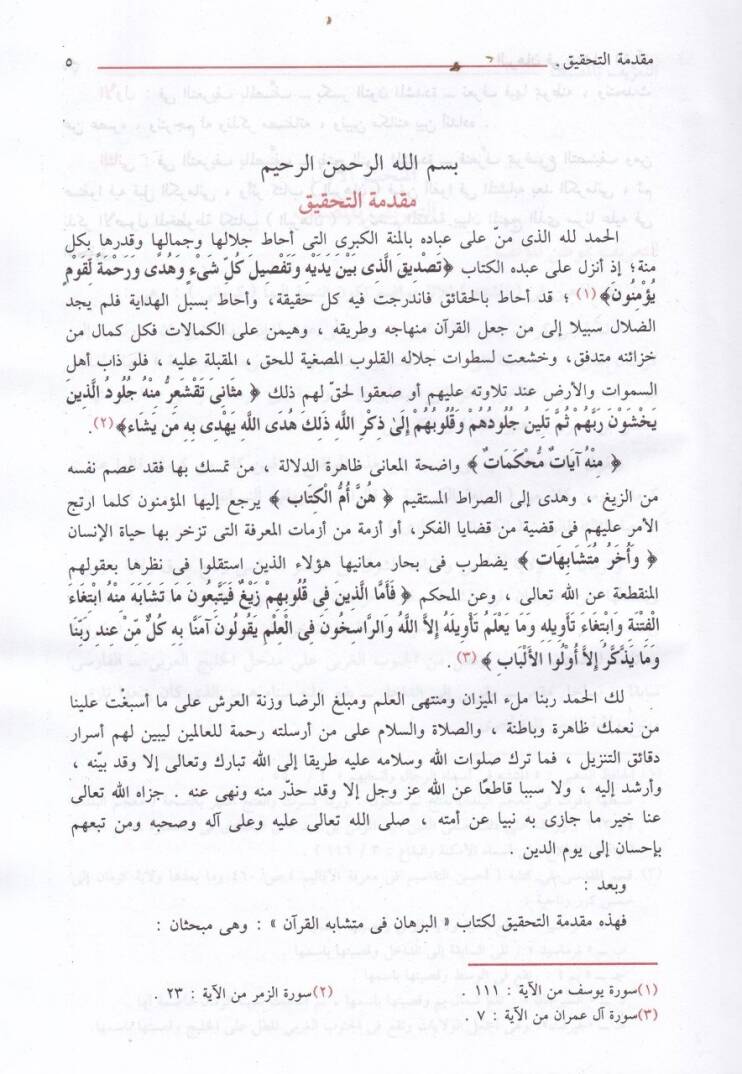 مقدمة التحقيق
٥
بسم الله الرحمن الرحيم
مقدمة التحقيق
الحمد لله الذى منّ على عباده بالمنة الكبرى التى أحاط جلالها وجمالها وقدرها بكل
منة؛ إذ أنزل على عبده الكتاب ﴿تَصْدِيقَ الَّذِى بَيْنَ يَدَيْهِ وَتَفْصِيلَ كُلِّ شَىْءٍ وَهُدًى وَرَحْمَةً لِّقَوْمٍ
يُؤْمِنُونَ﴾(١) ؛ قد أحاط بالحقائق فاندرجت فيه كل حقيقة، وأحاط بسبل الهداية فلم يجد
الضلال سبيلا إلى من جعل القرآن منهاجه وطريقه ، وهيمن على الكمالات فكل كمال من
خزائنه متدفق، وخشعت لسطوات جلاله القلوب المصغية للحق ، المقبلة عليه ، فلو ذاب أهل
السموات والأرض عند تلاوته عليهم أو صعقوا لحقّ لهم ذلك ﴿ مَثَانِىَ تَقْشَعِرُّ مِنْهُ جُلُودُ الَّذِينَ
يَخْشَوْنَ رَبَّهُمْ ثُمَّ تَلِينُ جُلُودُهُمْ وَقُلُوبُهُمْ إِلَىٰ ذِكْرِ اللَّه ذَلِكَ هُدَى اللَّهِ يَهْدِى بِهِ مَن يَشَاء﴾(٢).
﴿ مِنْهُ آيَاتٌ مُّحْكَمَاتٌ ﴾ واضحة المعانى ظاهرة الدلالة ، من تمسك بها فقد عصم نفسه
من الزيغ ، وهدى إلى الصراط المستقيم ﴿ هُنَّ أُمُّ الْكِتَاب ﴾ يرجع إليها المؤمنون كلما ارتج
الأمر عليهم فى قضية من قضايا الفكر، أو أزمة من أزمات المعرفة التى تزخر بها حياة الإنسان
﴿ وَأُخَرُ مُتَشَابِهَات ﴾ يضطرب فى بحار معانيها هؤلاء الذين استقلوا فى نظرها بعقولهم
المنقطعة عن الله تعالى ، وعن المحكم ﴿ فَأَمَّا الَّذِينَ فِى قُلُوبِهِمْ زَيْغٌ فَيَتَّبِعُونَ مَا تَشَابَهَ مِنْهُ ابْتِغَاءَ
الْفِتْنَة وَابْتِغَاءَ تَأْوِيلِهِ وَمَا يَعْلَمُ تَأْوِيلَهُ إِلاَّ اللَّهُ وَالرَّاسِخُونَ فِى الْعِلْمِ يَقُولُونَ آمَنَّا بِهِ كُلٌّ مِّنْ عِندِ رَبِّنَا
وَمَا يَذَّكَّرُ إِلاَّ أُوْلُوا الأَلْبَاب ﴾(٣).
لك الحمد ربنا ملء الميزان ومنتهى العلم ومبلغ الرضا وزنة العرش على ما أسبغْت علينا
من نعمك ظاهرة وباطنة ، والصلاة والسلام على من أرسلته رحمة للعالمين ليبين لهم أسرار
دقائق التنزيل ، فما ترك صلوات الله وسلامه عليه طريقا إلى الله تبارك وتعالى إلا وقد بيّنه ،
وأرشد إليه ، ولا سببا قاطعًا عن الله عز وجل إلا وقد حذّر منه ونهى عنه . جزاه الله تعالى
عنا خير ما جازى به نبيا عن أمته ، صلى الله تعالى عليه وعلى آله وصحبه ومن تبعهم
بإحسان إلى يوم الدين .
وبعد :
فهذه مقدمة التحقيق لكتاب « البرهان فى متشابه القرآن » : وهى مبحثان :
(١)سورة يوسف من الآية : ١١١. (٢)سورة الزمر من الآية : ٢٣ .
(٣)سورة آل عمران من الآية : ٧ .